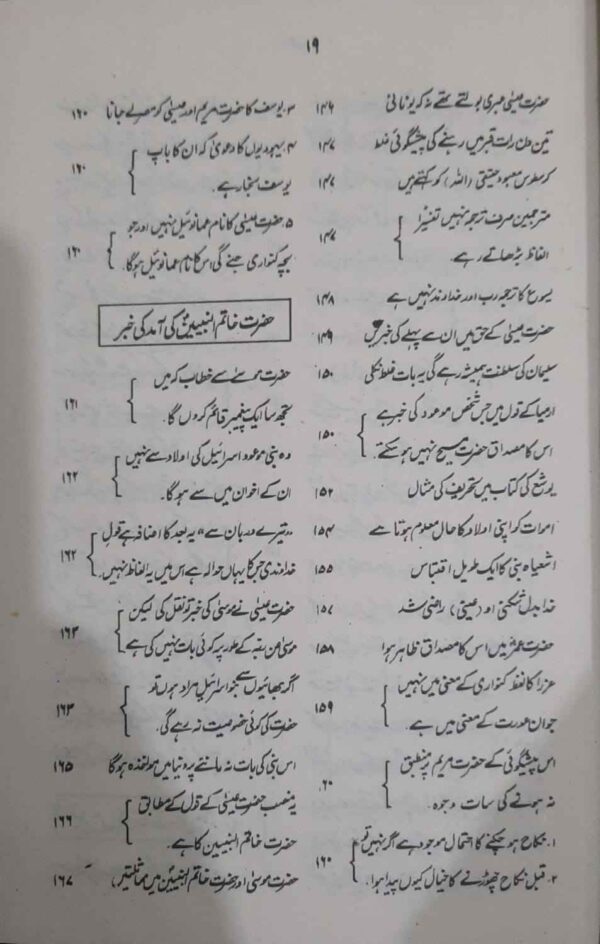 ۱۹
حضرت عیسیٰ عبری بولتے تھے نہ کہ یونانی ۱۴۶
تین دن رات قبر میں رہنے کی پیشگوئی غلط ۱۴۷
کرسطوس معبود حقیقی (اللہ) کو کہتے ہیں ۱۴۷
مترجمین صرف ترجمہ نہیں تفسیراً
الفاظ بڑھاتے رہے۔ ۱۴۷
یسوع کا ترجمہ رب اور خداوند نہیں ہے ۱۴۸
حضرت عیسیٰ کے حق میں ان سے پہلے کی خبریں ۱۴۹
سلیمان کی سلطنت ہمیشہ رہے گی یہ بات غلط نکلی ۱۵۰
ارمیا کے قول میں جس شخص موعود کی خبر ہے
اس کا مصداق حضرت مسیح نہیں ہو سکتے۔ ۱۵۰
یوشع کی کتاب میں تحریف کی مثال ۱۵۲
اموات کو اپنی اولاد کا حال معلوم ہوتا ہے ۱۵۴
اشعیاہ نبی کا ایک طویل اقتباس ۱۵۵
خدا بدل شکنی او (عیسٰی) راضی شد ۱۵۷
حضرت عمرؓ میں اس کا مصداق ظاہر ہوا ۱۵۸
عزرا کا لفظ کنواری کے معنی میں نہیں
جوان عورت کے معنی میں ہے۔ ۱۵۹
اس پیشگوئی کے حضرت مریم پر منطبق
نہ ہونے کی سات وجوہ ۶۰
۱۔ نکاح ہو چکنے کا احتمال موجود ہے اگر نہیں تو
۲۔ قبل نکاح چھوڑنے کا خیال کیوں پیدا ہوا۔ ۱۶۰
۳۔ یوسف کا حضرت مریم اور عیسیٰ کو مصر لے جانا ۱۶۰
۴۔ یہودیوں کا دعویٰ کہ ان کا باپ
یوسف نجار ہے۔ ۱۶۰
۵۔ حضرت عیسیٰ کا نام عمانوئیل نہیں اور جو
بچہ کنواری جنے گی اس کا نام عمانوئیل ہوگا۔ ۱۶۰
حضرت خاتم النبیین کی آمد کی خبر
حضرت موسےٰ سے خطاب کہ میں
تجھ سا ایک پیغمبر قائم کروں گا۔ ۱۶۱
وہ نبی موعود اسرائیل کی اولاد سے نہیں
ان کے اخوان میں سے ہوگا۔ ۱۶۲
"تیرے درمیان سے" یہ بعد کا اضافہ ہے قول
خداوندی جس کا یہاں حوالہ ہے اس میں یہ الفاظ نہیں۔ ۱۶۲
حضرت عیسیٰ نے موسیٰ کی خبر تو نقل کی لیکن
موسیٰ من بنہ کے طور پر کوئی بات نہیں کی ہے ۱۶۳
اگر بھائیوں سے بنو اسرائیل مراد ہوں تو
حضرت کی کوئی خصوصیت نہ رہے گی۔ ۱۶۳
اس نبی کی بات نہ ماننے پر دنیا میں مواخذہ ہوگا ۱۶۵
یہ منصب حضرت عیسیٰ کے قول کے مطابق
حضرت خاتم النبیین کا ہے۔ ۱۶۶
حضرت موسیٰ اور حضرت خاتم النبیین میں مماثلتیں ۱۶۷